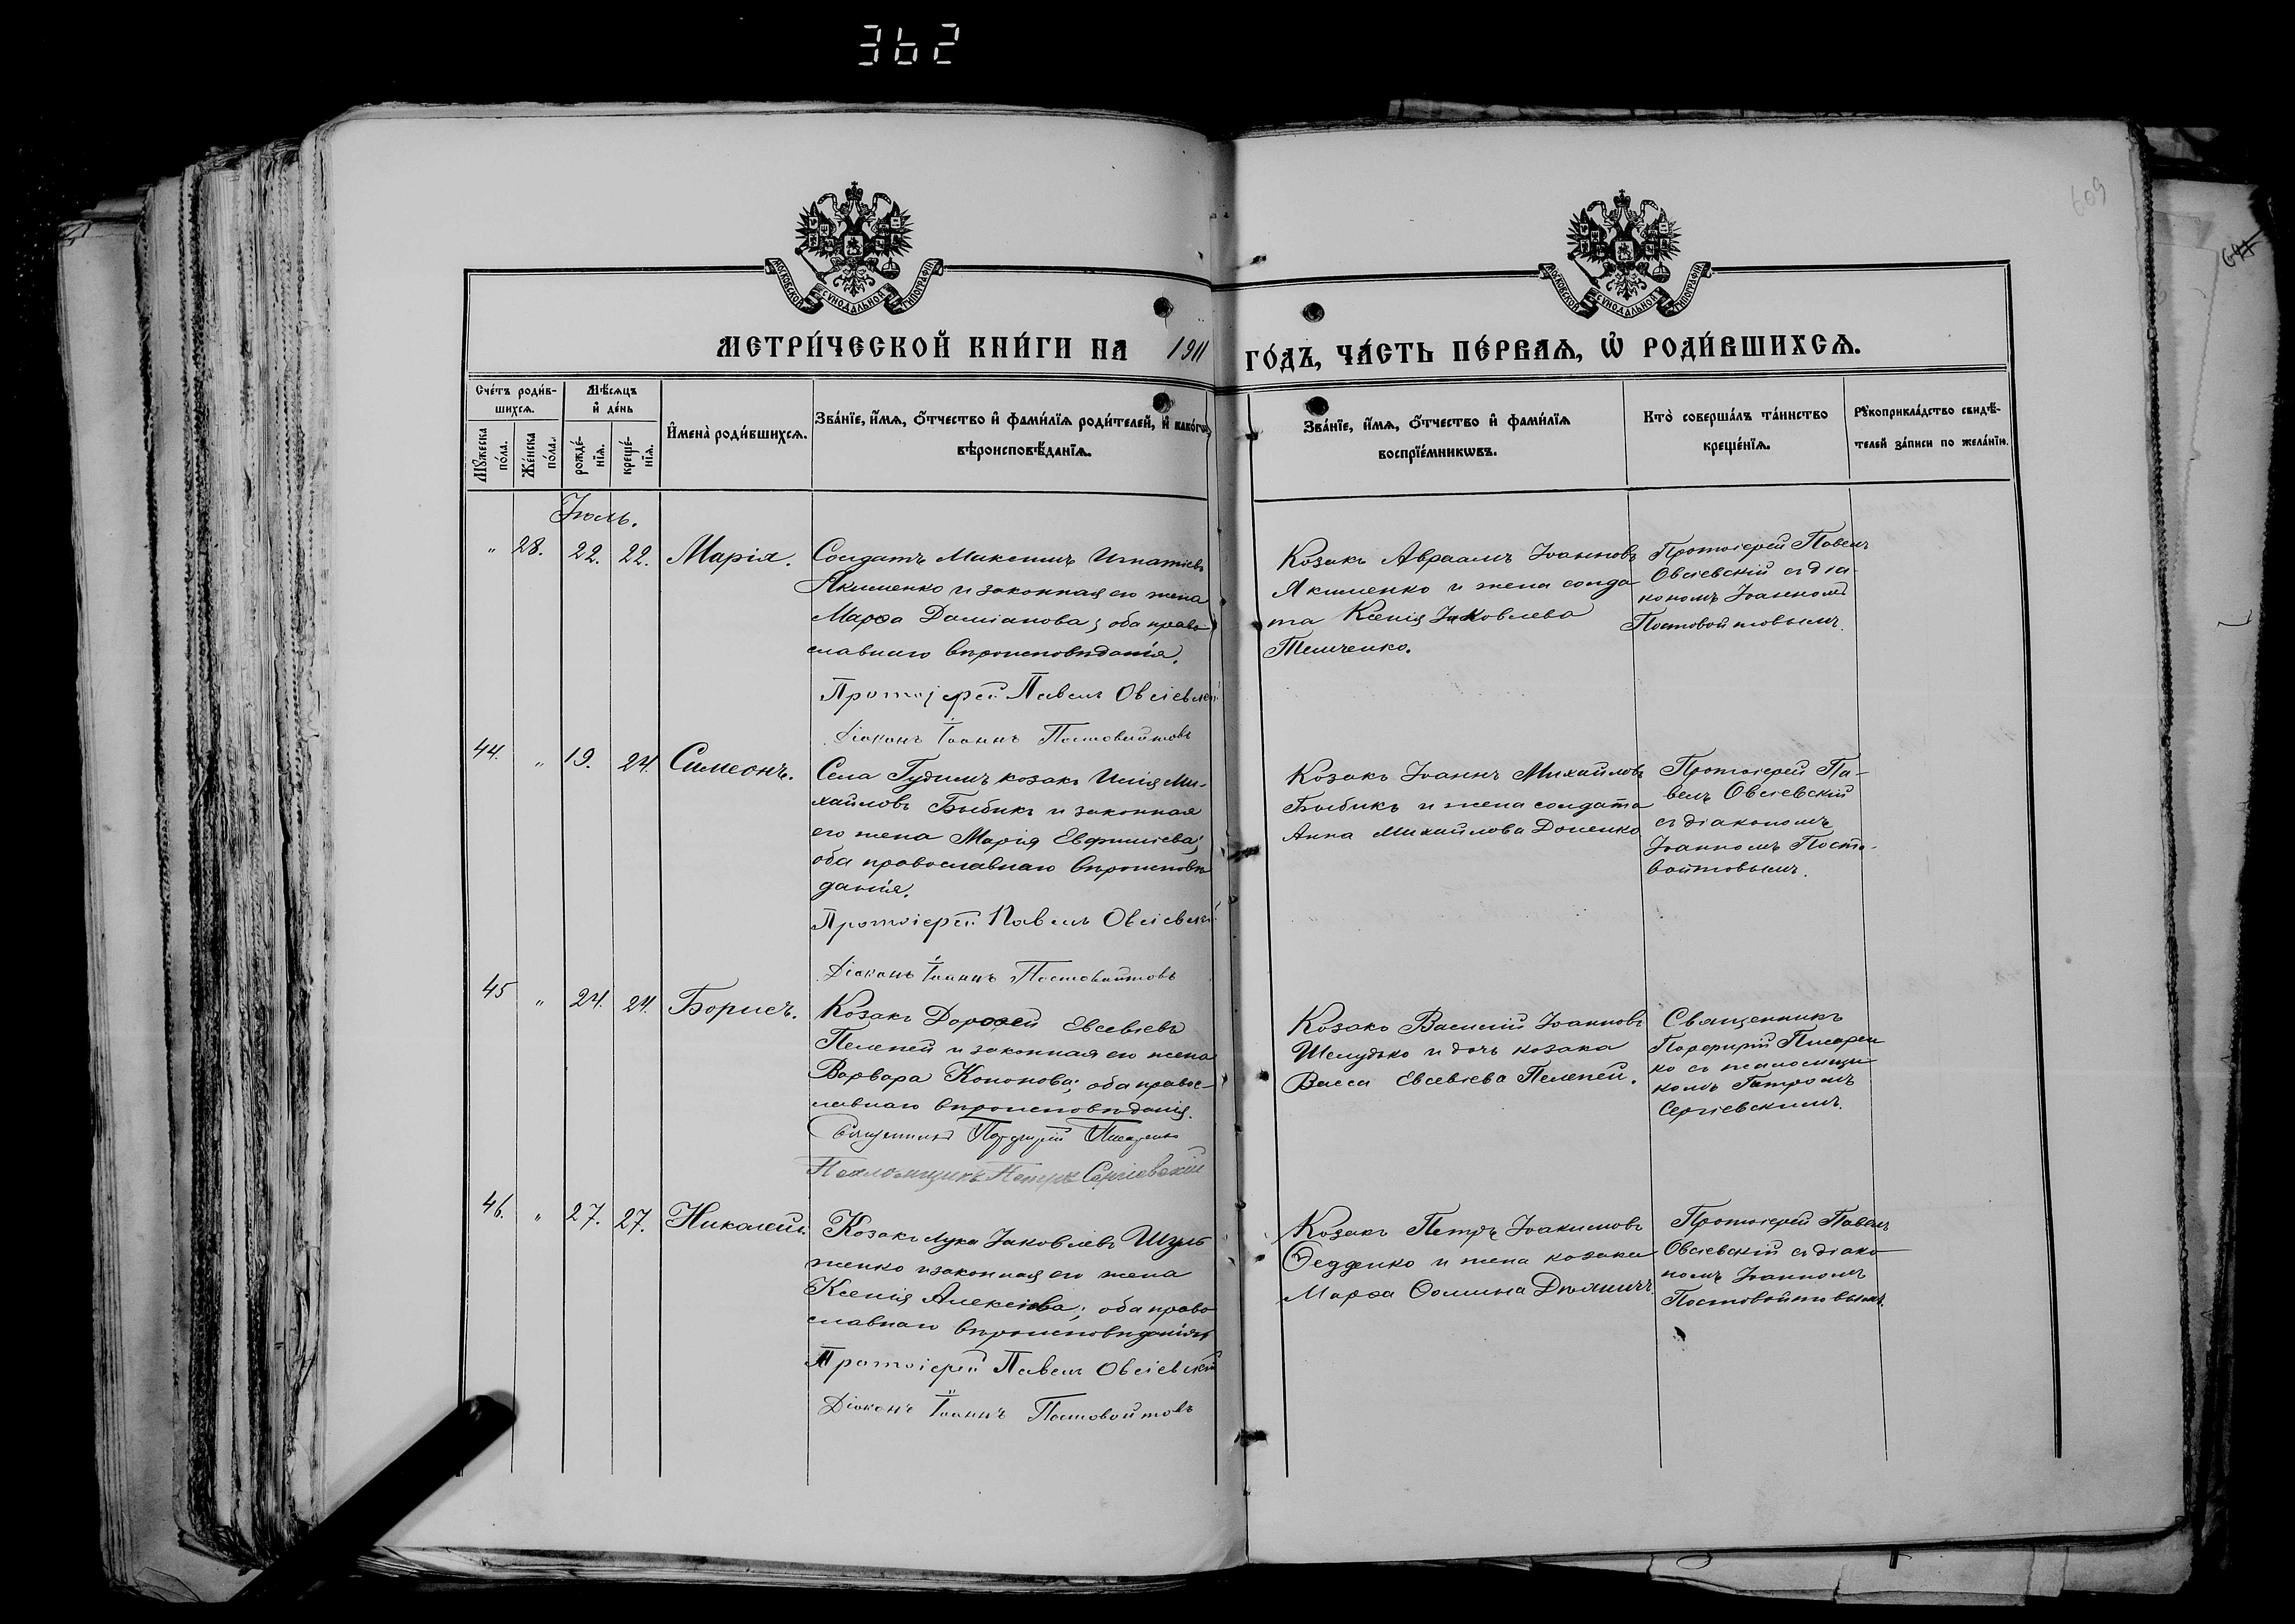 362
609
МОСКОВСКОЙ СѴНОДАЛЬНОЙ ТИПОГРАФІИ
МОСКОВСКОЙ СѴНОДАЛЬНОЙ ТИПОГРАФІИ
МЕТРИ́ЧЕСКОЙ КНИ́ГИ НА 1911 ГО́ДЪ, ЧА́СТЬ ПЕ́РВАЯ, Ѡ҆ РОДИ́ВШИХСЯ.
Сче́тъ роди́в-
шихся.
Мꙋ́жеска по́ла.
Же́нска по́ла.
Мѣ́сяцъ
и҆ де́нь
рожде́-
нїя.
креще́-
нїя.
И҆мена̀ роди́вшихся.
Зва́нїе, и҆́мя, ѻ҆́тчество и҆ фами́лїя роди́телей, и҆ како́гѡ
вѣроисповѣ́данїя.
Зва́нїе, и҆́мя, ѻ҆́тчество и҆ фами́лїя
воспрїе́мникѡвъ.
Кто̀ соверша́лъ та́инство
креще́нїя.
Рꙋкоприкла́дство свидѣ́-
телей за́писи по жела́нїю.
Іюль.
„ 28. 22. 22. Марія.
Солдатъ Максимъ Игнатіевъ
Якименко и законная его жена
Марѳа Даміанова; оба право
славнаго вѣроисповѣданія.
Протоіерей Павелъ Овсіевскій
Діаконъ Іоаннъ Постовойтовъ
Козакъ Авраамъ Іоанновъ
Якименко и жена солда
та Ксенія Іаковлева
Темченко.
Протоіерей Павелъ
Овсіевскій съ діа-
кономъ Іоанномъ
Постовойтовымъ.
44. „ 19. 24. Симеонъ.
Села Гудимъ козакъ Илія Ми-
хайловъ Быбикъ и законная
его жена Марія Евфиміева;
оба православнаго вѣроисповѣ
данія.
Протоіерей Павелъ Овсіевскій
Діаконъ Іоаннъ Постовойтовъ
Козакъ Іоаннъ Михайловъ
Быбикъ и жена солдата
Анна Михайлова Доценко
Протоіерей Па-
велъ Овсіевскій
съ діакономъ
Іоанномъ Посто-
войтовымъ.
45 „ 24. 24. Борисъ.
Козакъ Дороѳей Евсевіевъ
Пелепей и законная его жена
Варвара Кононова; оба правос-
лавнаго вѣроисповѣданія.
Священникъ Порфирій Писаренко
Псаломщикъ Петръ Сергіевскій
Козакъ Василій Іоанновъ
Шелудько и дочь козака
Васса Евсевіева Пелепей.
Священникъ
Порфирій Писарен
ко съ псаломщи
комъ Петромъ
Сергіевскимъ.
46. „ 27. 27. Николай.
Козакъ Лука Іаковлевъ Шуль
женко и законная его жена
Ксенія Алексіева; оба право
славнаго вѣроисповѣданія
Протоіерей Павелъ Овсіевскій
Діаконъ Іоаннъ Постовойтовъ
Козакъ Петръ Іоакимовъ
и жена козака
Марѳа Ѳомина
Протоіерей Павелъ
Овсіевскій съ діако
номъ Іоанномъ
Постовойтовымъ.